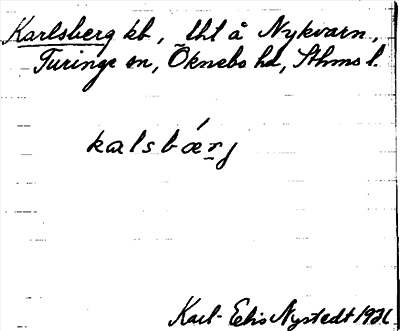 Karlsberg kb, tht å Nykvarn,
Turinge sn, Öknebo hd, Sthms l.
kalsbærj
Karl-Eric Nystedt